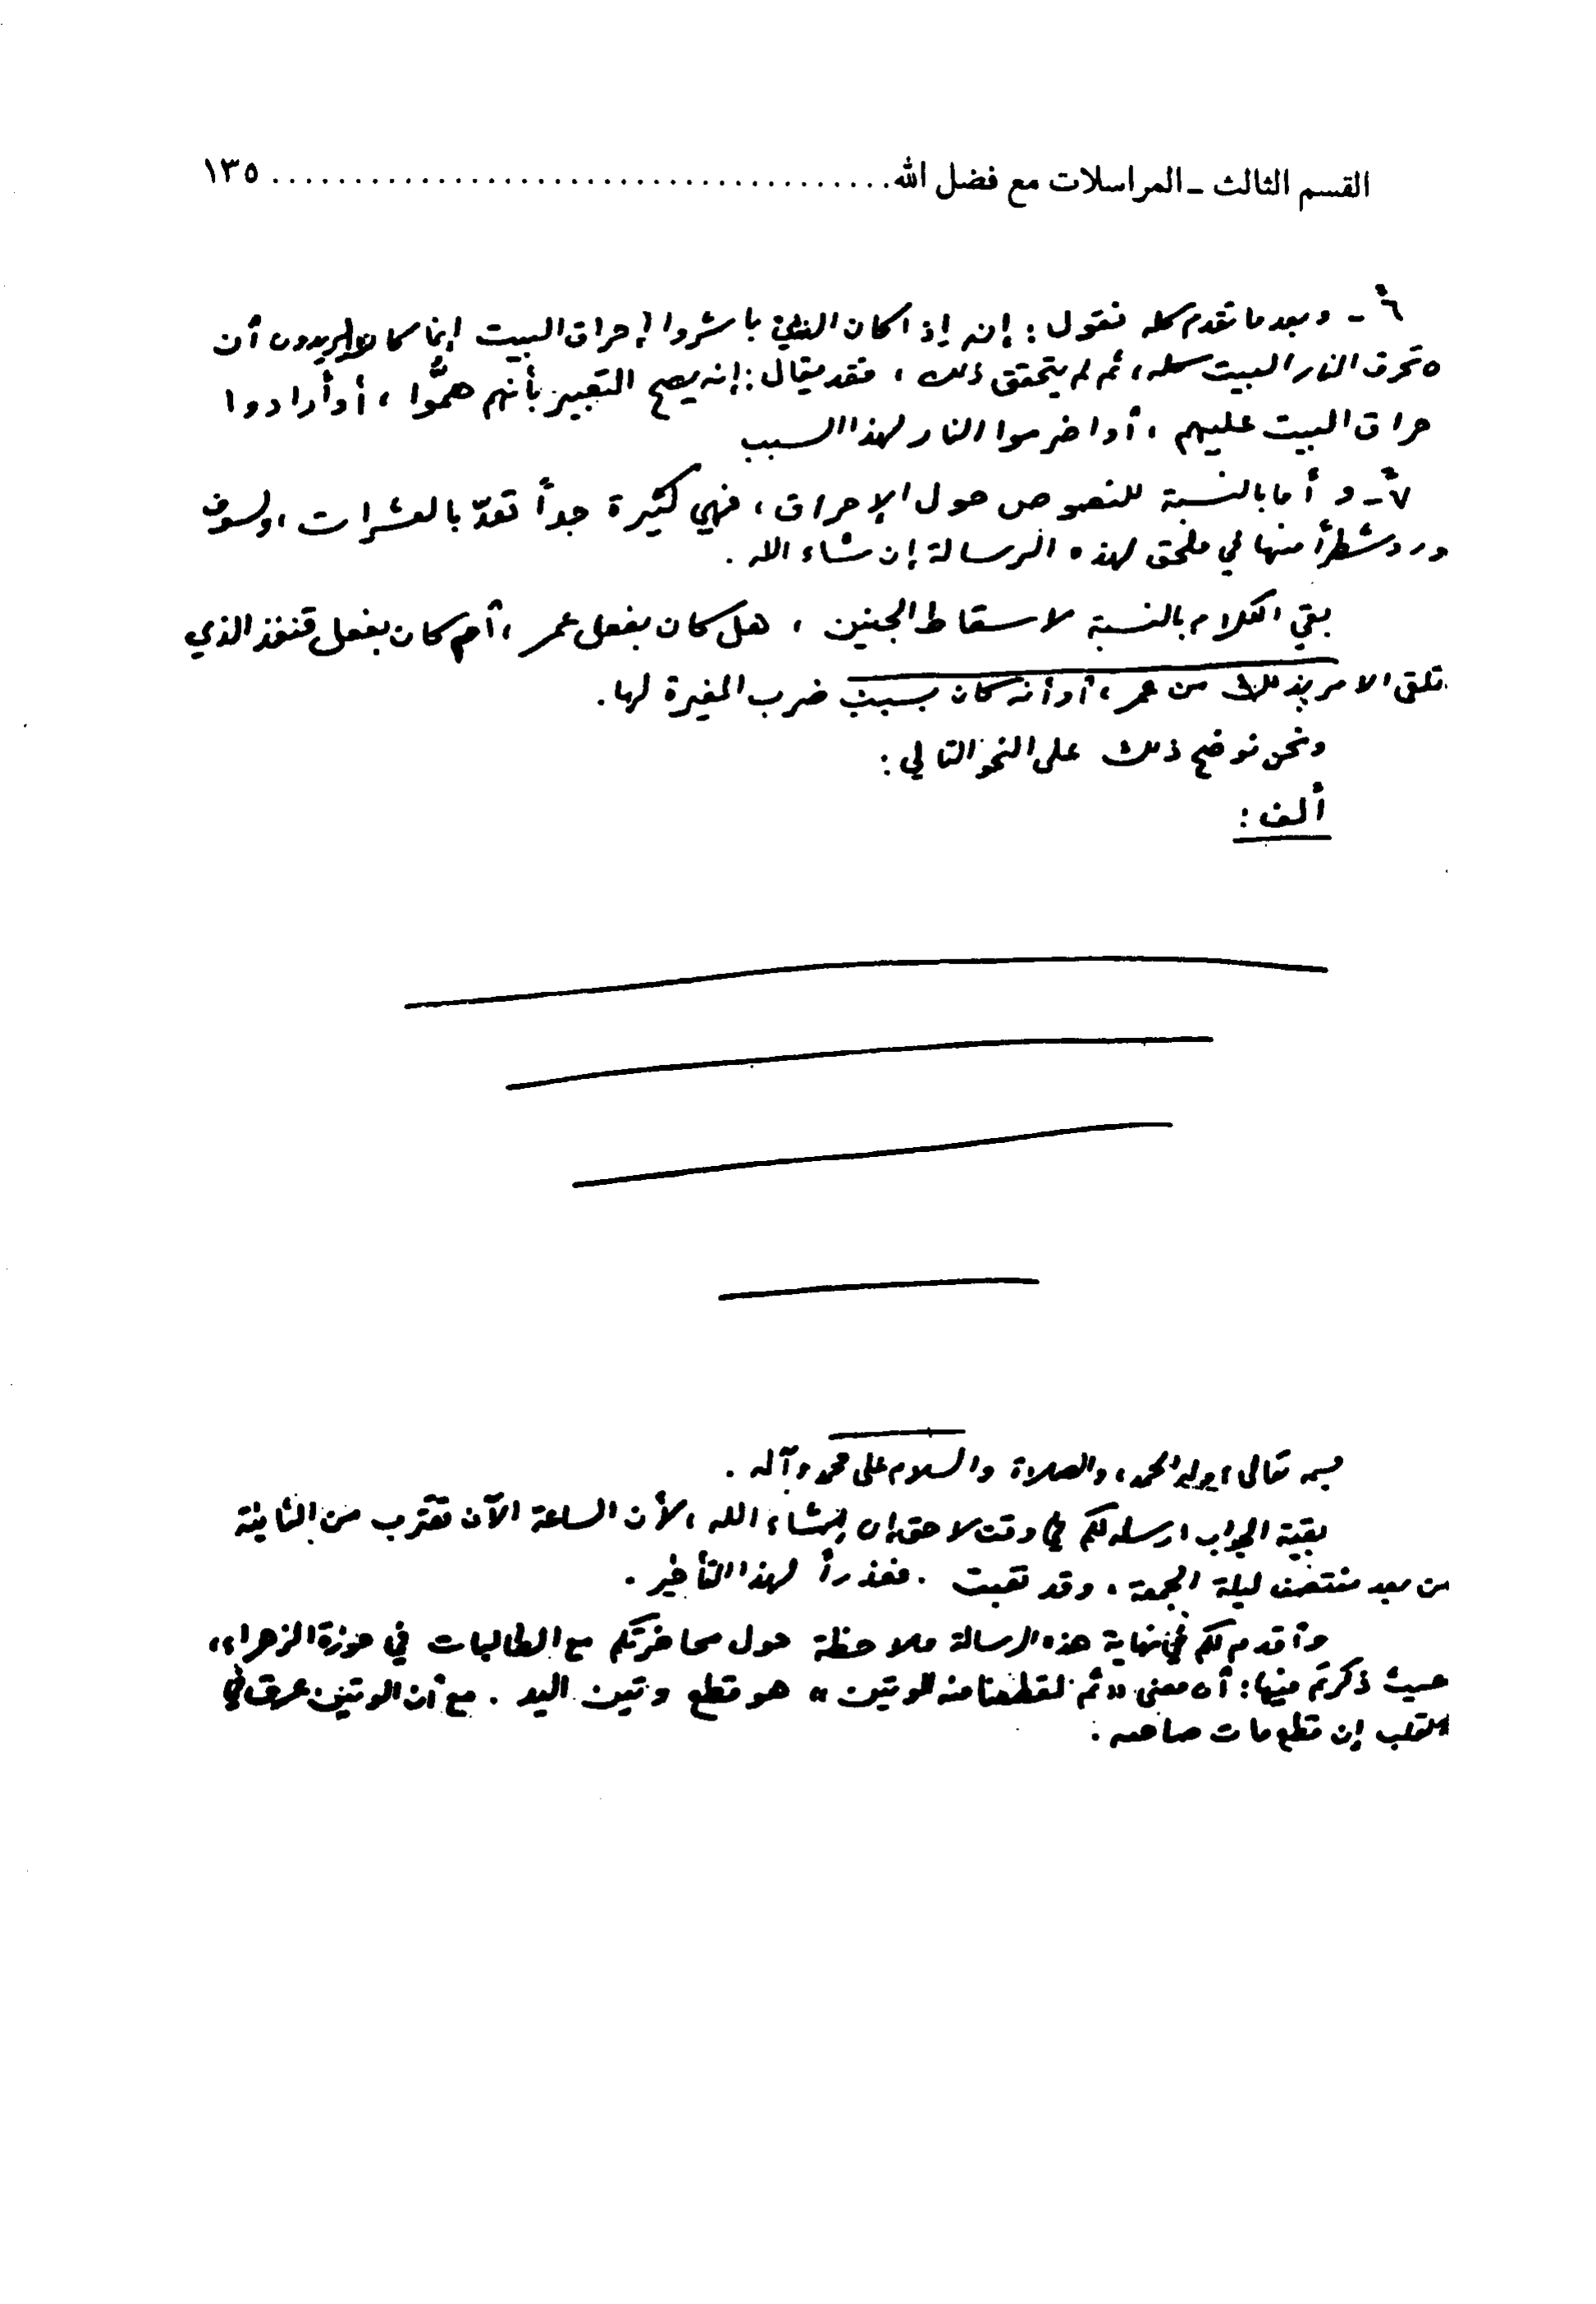 القسم الثالث ـ المراسلات مع فضل الله ........................................ ١٣٥
٦ً ـ وبعد ما تقدم كله نقول : إنه إذا كان الذين باشروا إحراق البيت إنما كانوا يريدون أن
تحرق النار البيت كله ، ثم لم يتحقق ذلك ، فقد يقال : إنه يصح التعبير بأنهم همُّوا ، أو أرادوا
حراق البيت عليهم ، أو اضرموا النار لهذا السبب
٧ً ـ و أما بالنسبة للنصوص حول الإحراق ، فهي كثيرة جداً تعدّ بالعشرات ، ولسوف
ورد شطراً منها في ملحق لهذه الرسالة إن شاء الله .
بقي الكلام بالنسبة لاسقاط الجنين ، هل كان بفعل عمر ، أم كان بفعل قنفذ الذي
تلقى الامر بذلك من عمر ، أو أنه كان بسبب ضرب المغيرة لها .
ونحن نوضح ذلك على النحو التالي :
ألف :
بسمه تعالى ، وله الحمد ، والصلاة والسلام على محمد وآله .
بقية الجواب ارسله لكم في وقت لاحق إن شاء الله ، لأن الساعة الآن تقترب من الثانية
من بعد منتصف ليلة الجمعة ، وقد تعبت . فعذراً لهذا التأخير .
وأقدم لكم في نهاية هذه الرسالة ملاحظة حول محاضرتكم مع الطالبات في حوزة الزهراء ،
حيث ذكرتم فيها : أن معنى « ثم لقطعنا منه الوتين » هو قطع وتين اليد . مع أن الوتين عرق في
القلب إن قطع مات صاحبه .